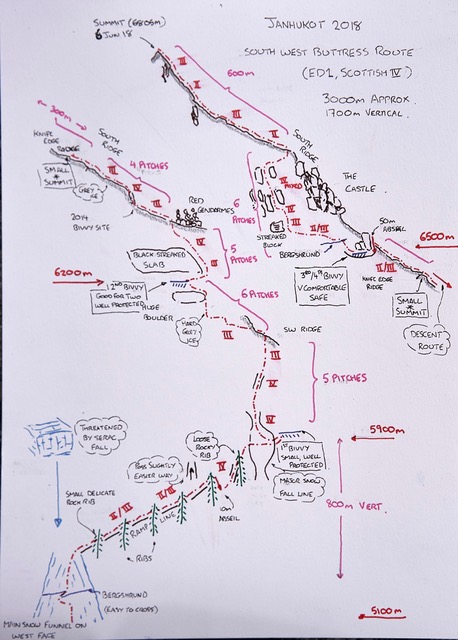 SUMMIT (6805m)
6 JUN 18
JANHUKOT 2018
SOUTH WEST BUTTRESS ROUTE
(ED1, SCOTTISH IV)
3000m APPROX.
1700m VERTICAL.
II
600m
II
III
300m
KNIFE
EDGE
RIDGE
SOUTH
RIDGE
4 PITCHES
SMALL
SUMMIT
GREY
ICE
IV
III
IV
2014
BIVVY SITE
RED
GENDARMES
SOUTH
RIDGE
6
PITCHES
IV
MIXED
IV
IV
III
II/III
THE
CASTLE.
STREAKED
BLOCK
BERGSHRUND
50m
ABSEIL
6500m
3RD/4TH BIVVY
V COMFORTABLE
SAFE
II/III
KNIFE EDGE
RIDGE
SMALL
SUMMIT
DESCENT
ROUTE
IV
III
5
PITCHES
BLACK STREAKED
SLAB
6200m
2ND BIVVY
GOOD FOR TWO
WELL PROTECTED
HUGE
BOULDER
6 PITCHES
HARD
GREY
ICE
III
SW RIDGE
III
IV
IV
5 PITCHES
5900m
1ST BIVVY
SMALL, WELL
PROTECTED
MAJOR SNOW
FALL LINE
800m VERT.
5100m
THREATENED
BY SERAC
FALL
LOOSE
ROCKY
RIB
PASS SLIGHTLY
EASIER WAY
IV
II/III
II/III
SMALL DELICATE
ROCK RIB
RAMP LINE
10m
ABSEIL
RIBS
BERGSHRUND
(EASY TO CROSS)
MAIN SNOW FUNNEL ON
WEST FACE